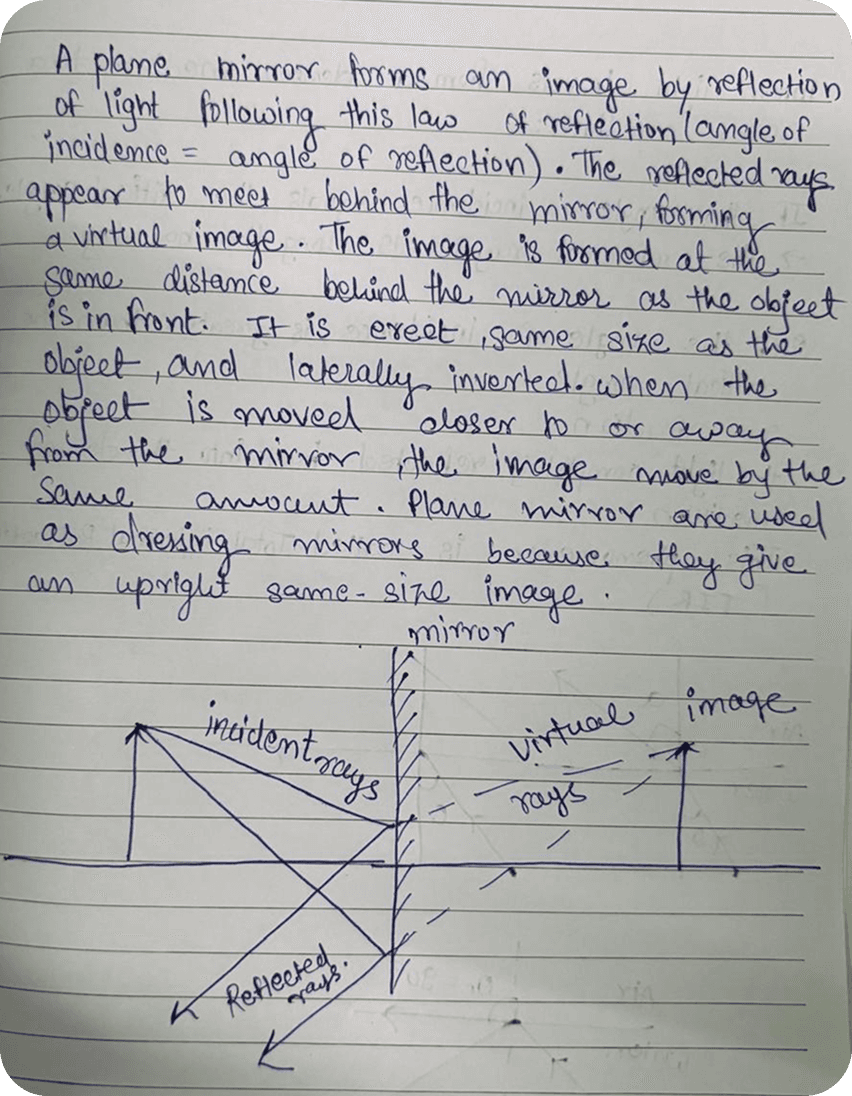 A plane mirror forms an image by reflection
of light following this law of reflection (angle of
incidence = angle of reflection). The reflected rays
appear to meet behind the mirror, forming
a virtual image. The image is formed at the
same distance behind the mirror as the object
is in front. It is erect, same size as the
object, and laterally inverted. when the
object is moved closer to or away
from the mirror, the image move by the
same amount. Plane mirror are used
as dressing mirrors because they give
an upright same-size image.
mirror
incident rays
virtual
rays
image
Reflected
rays.